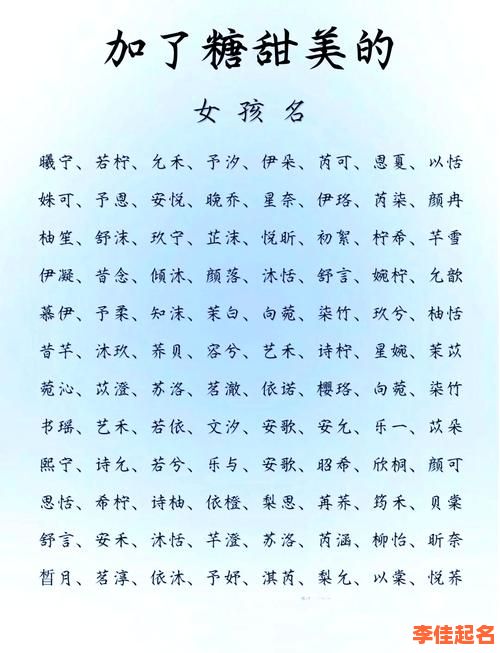 加了糖甜美的
女孩名
曦宁、若柠、允禾、予汐、伊朵、芮可、恩夏、以恬
姝可、予恩、安悦、晚乔、星奈、伊珞、芮柒、颜冉
柚笙、舒沫、玖宁、芷沫、悦昕、初絮、柠希、芊雪
伊凝、昔念、倾沐、颜落、沐恬、舒言、婉柠、允歆
慕伊、予柔、知沫、茉白、向菀、柒竹、玖兮、柚恬
昔芊、沐玖、荞贝、容兮、艺禾、诗柠、星婉、茉苡
菀沁、苡澄、苏洛、茗澈、依诺、樱珞、向菀、柒竹
书瑶、艺禾、若依、文汐、安歌、安允、乐一、苡朵
熙宁、诗允、若兮、乐与、安歌、昭希、欣桐、颜可
思恬、希柠、诗柚、依橙、梨思、苒荞、筠禾、贝棠
舒言、安禾、沐恬、芊澄、苏洛、芮涵、柳怡、昕奈
皙月、茗淳、依沐、予妤、淇芮、梨允、以棠、悦荞
李佳起名